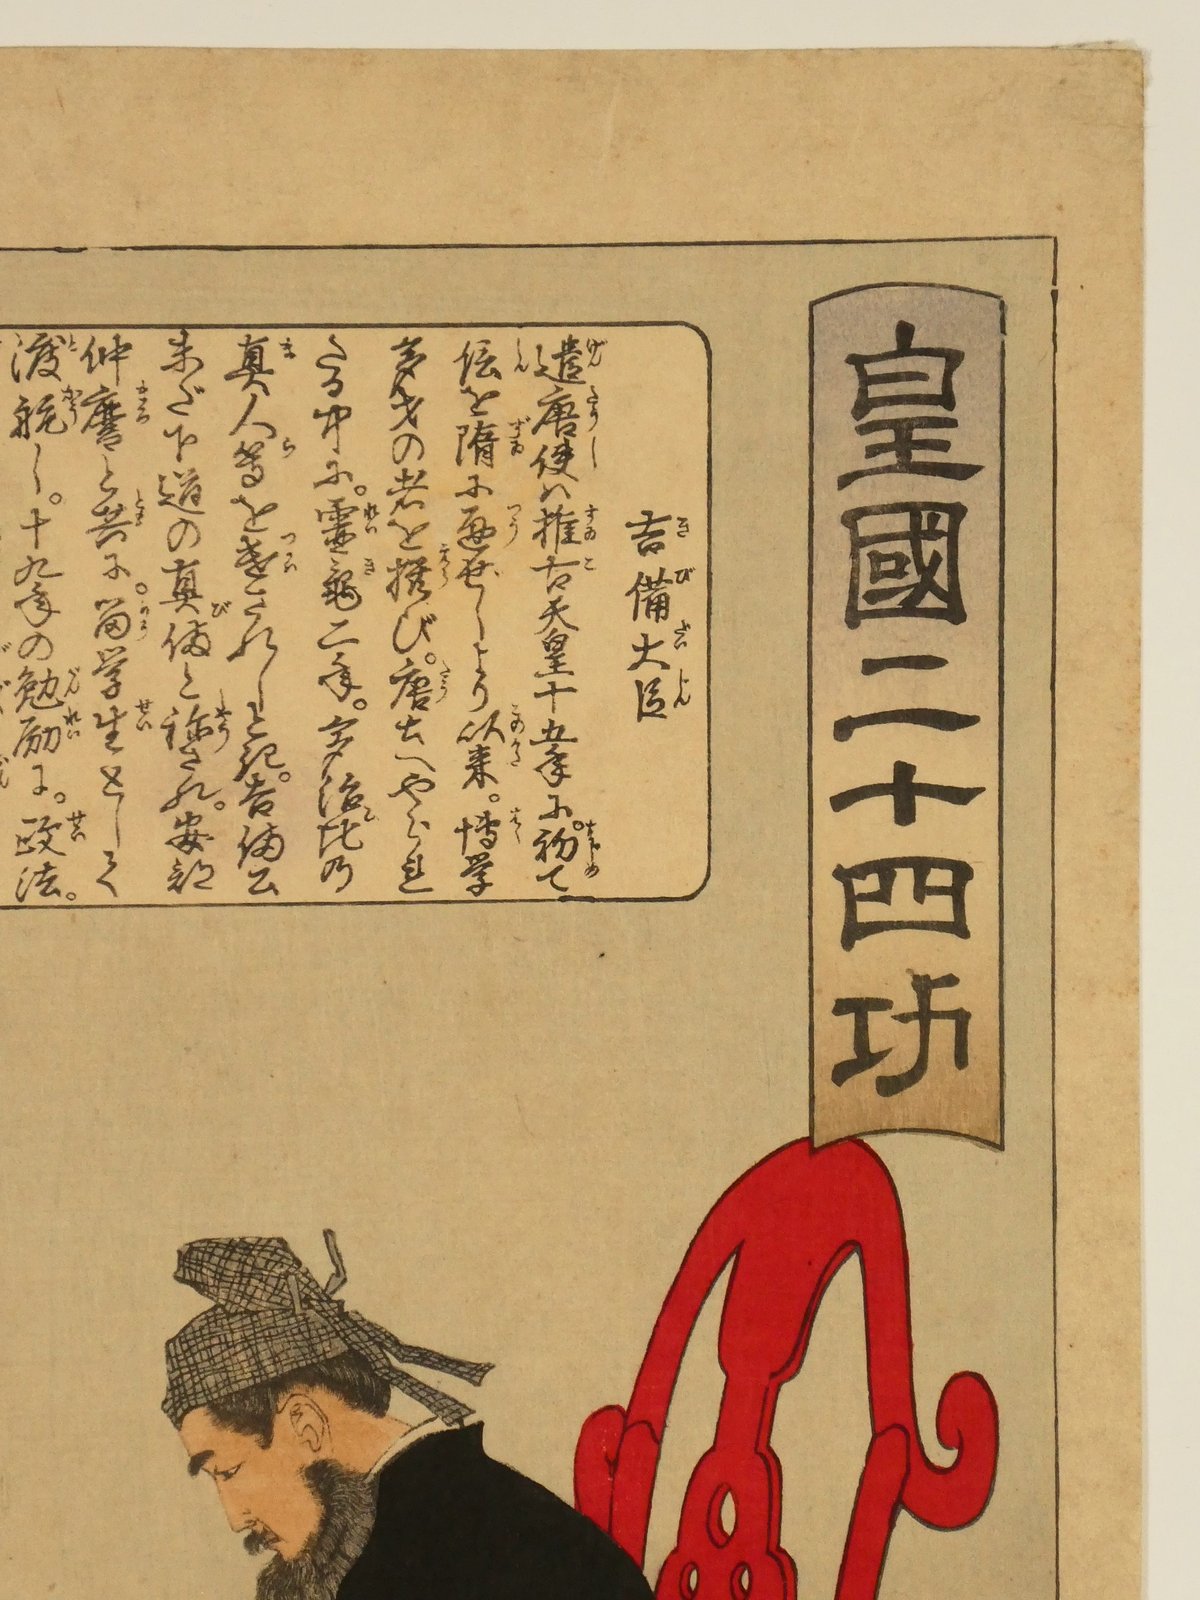 皇國二十四功
吉備大臣
遣唐使ハ推古天皇十五年に。初て
伝を隋に通ぜしより以来。博学
多才の者を撰び。唐土へやられ
たる中に。靈亀二年。多治比乃
真人等を遣されしとき。吉備公
未だ下道の真備と称され。安部
仲麿と共に。留学生として
渡航し。十九年の勉励に。政法。